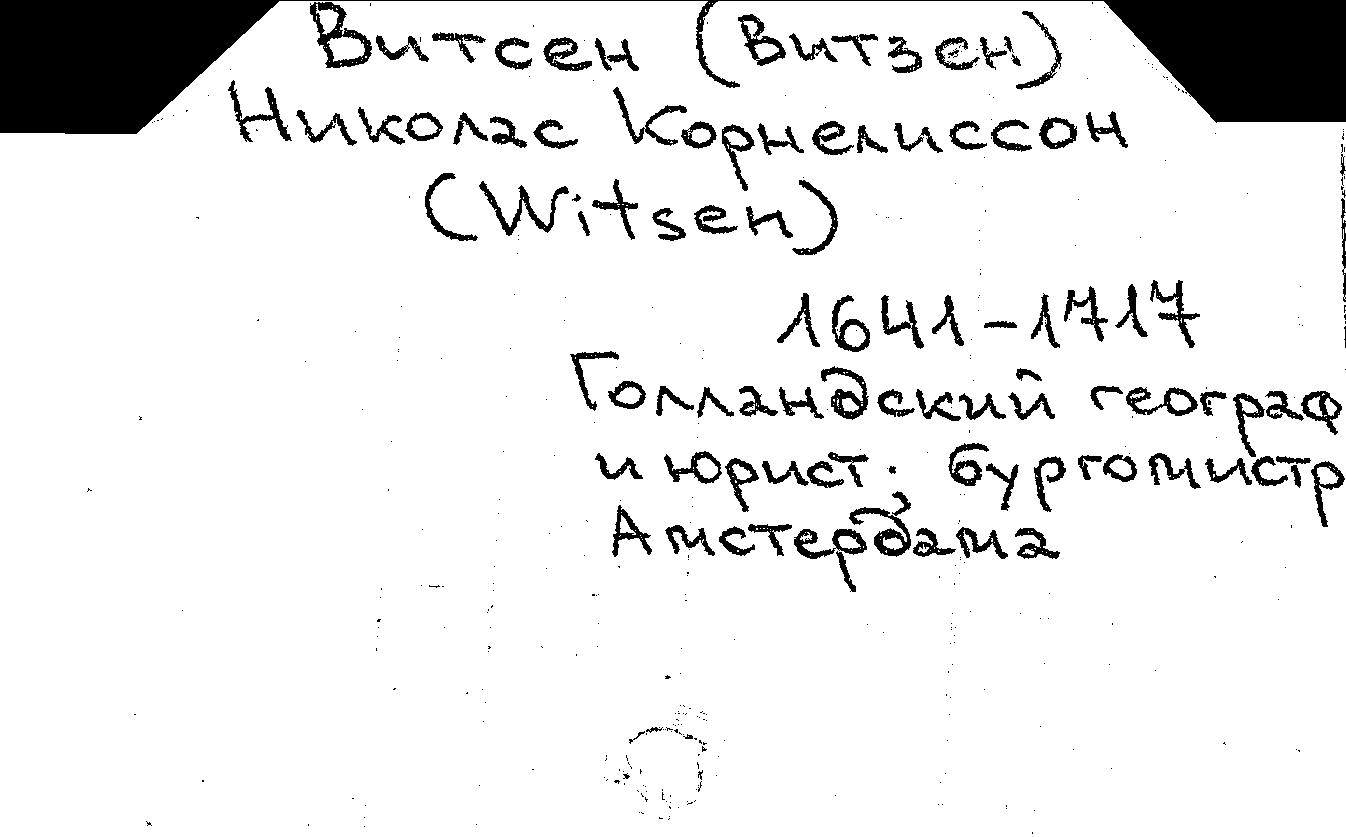 Витсен (Витзен)
Николас Корнелиссон
(Witsen)
1641-1717
Голландский географ
и юрист, бургомистр
Амстердама